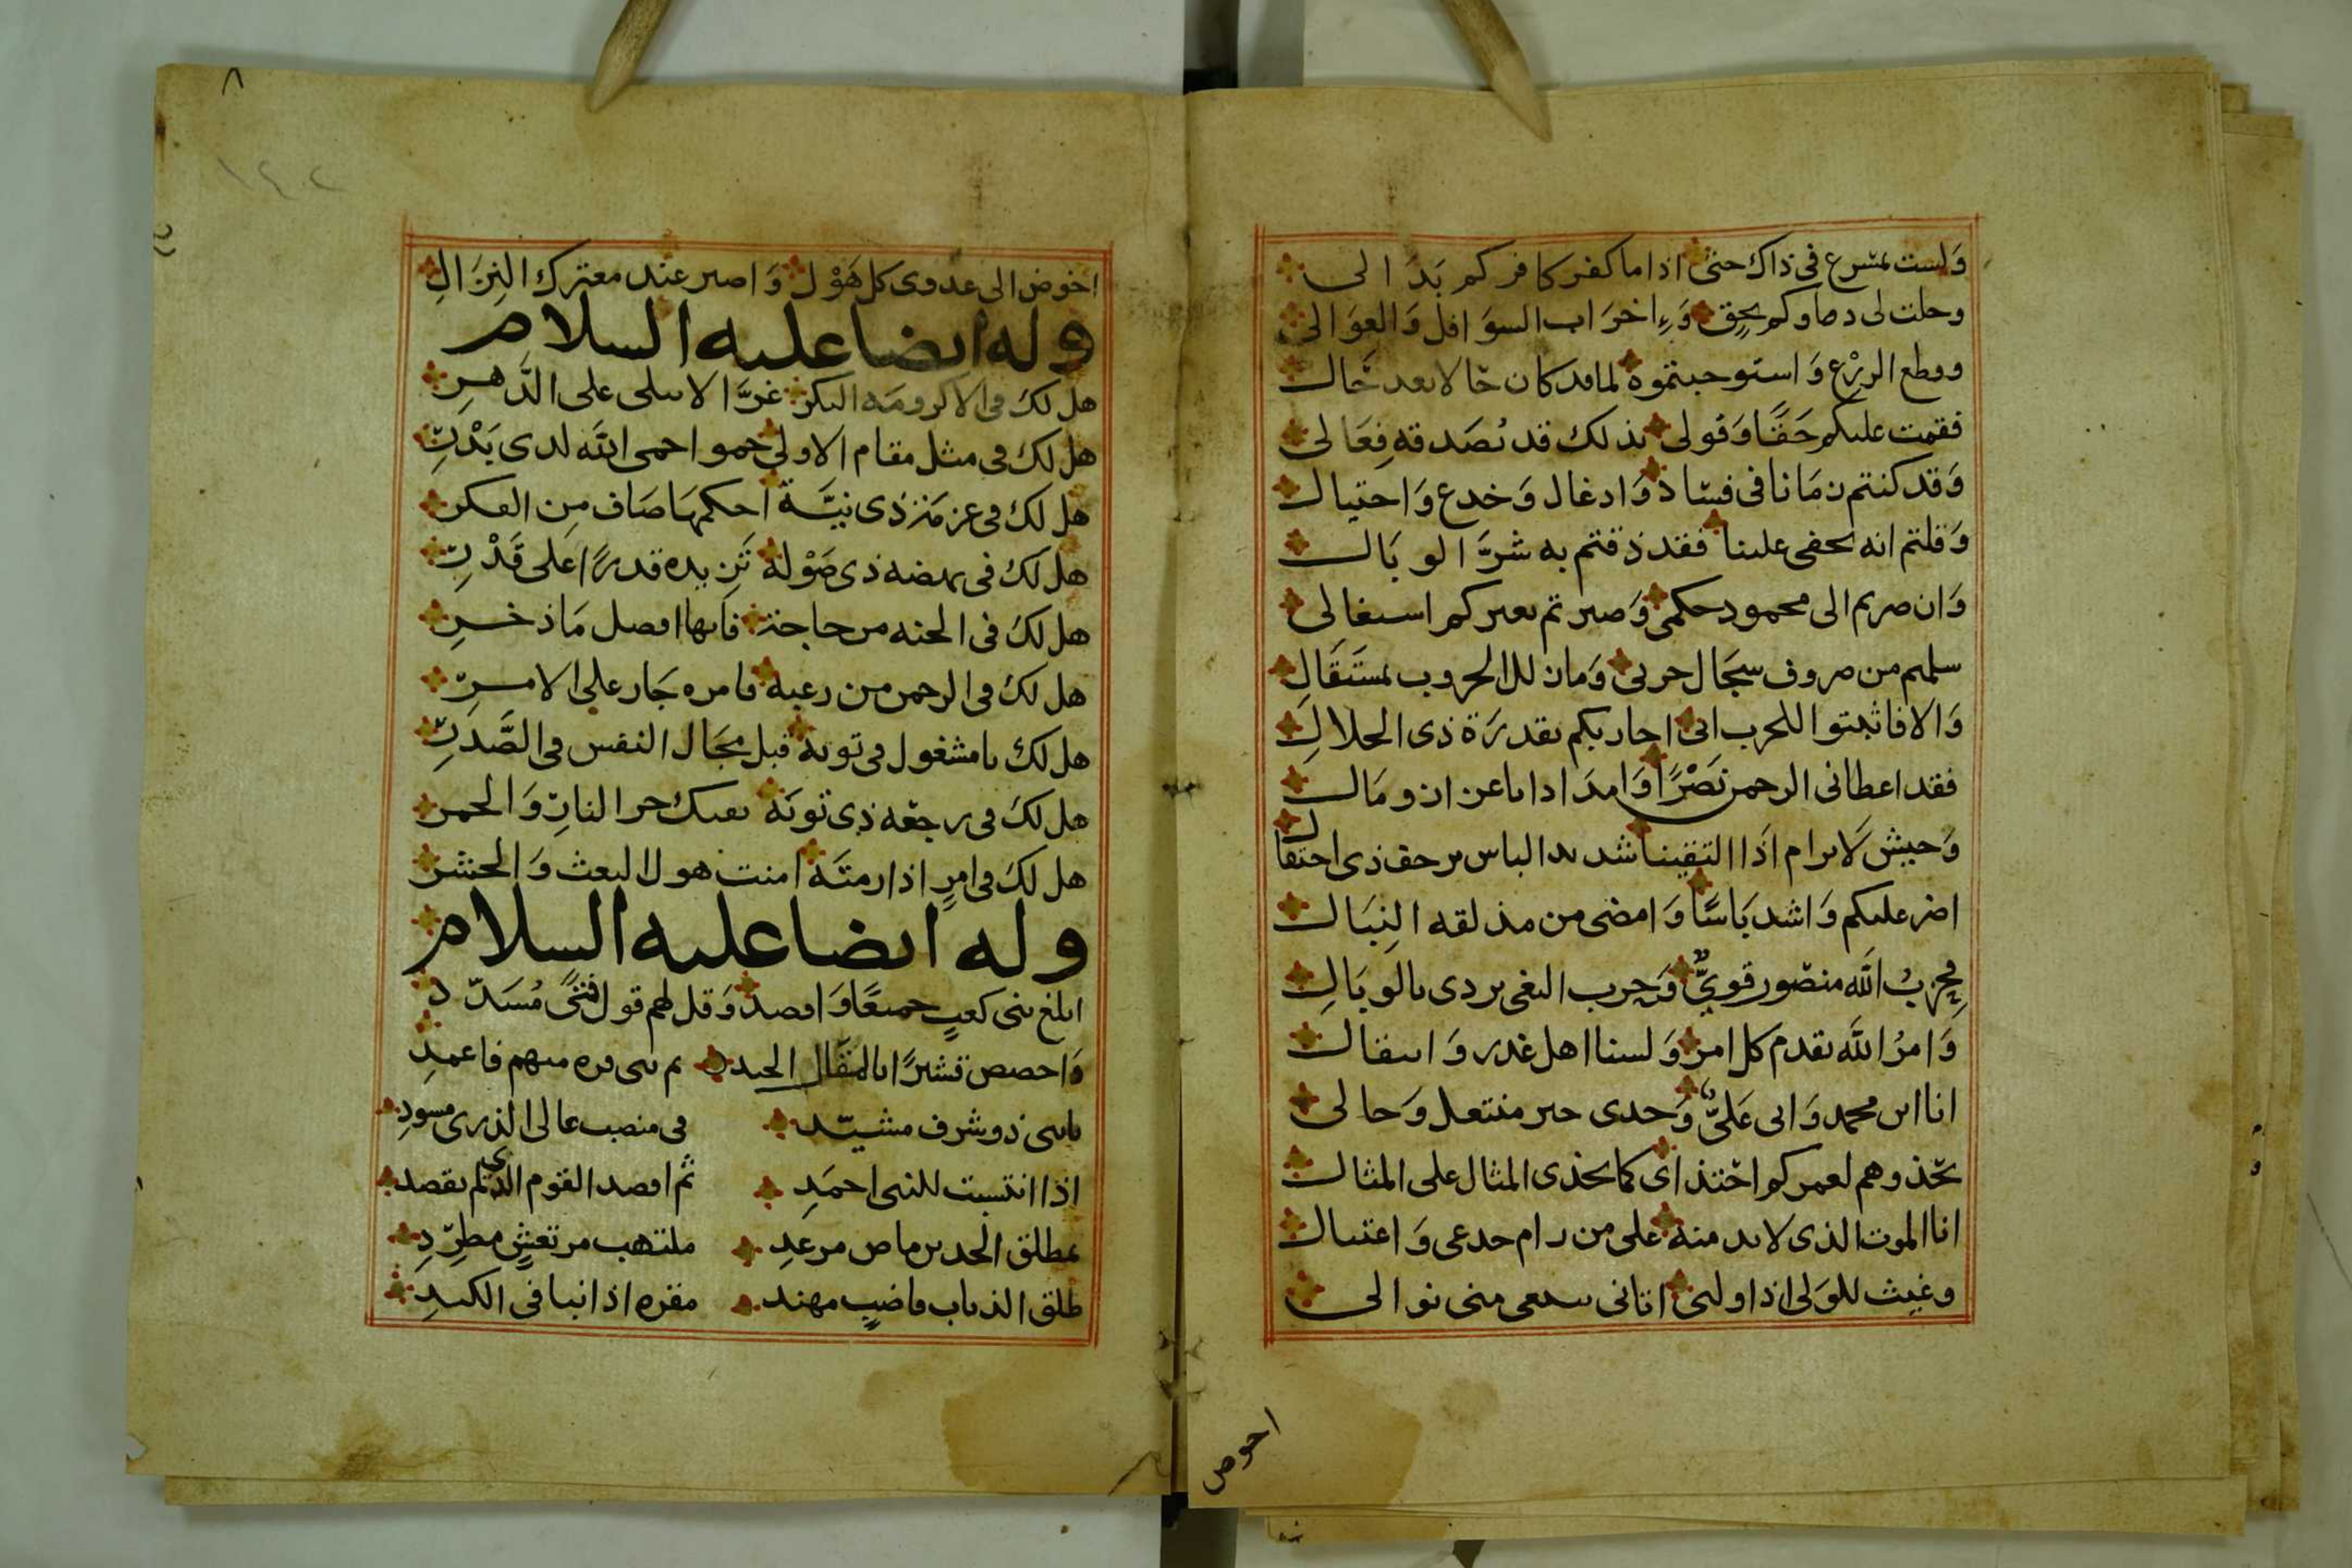 وَلست بمسرع في ذاك حتى اذا ما كفر كافركم بَدَا لى
وحلت لى دماوكم بحق وَإخرَاب السوَافل وَالعوَالى
وقطع الزرع وَاستوجبتموه لما قد كان حَالا بعد حَال
فقمت عليكم حَقًّا وَقولى بذلك قد تُصَدقه فِعَالى
وَقد كنتم زمَانا في فسَاد وَادغال وَخدع وَاحتيال
وَقلتم انه يخفى علينا فقد ذقتم به شرَّ الوبَال
وَان صرتم الى محمود حكمى وَصير تم بعيركم
سلمتم من صروف سجَال حربى وَمَا نار الحروب بمستَقَالِ
وَالا فاثبتوا للحرب انى احاربكم بقدرَة ذى الجلال
فقد اعطانى الرحمن نَصْرًا وَامدَادا باعزاز وَمَال
وَجيش لَا يرام اذَا التقينا شديد الباس يرجف ذى احتفال
اضر عليكم وَاشد بَاسًا وَامضى من مذلقه النِبَال
فحِزبُ الله منصور قويٌّ وَحزب البغى يردى بالوبَالِ
وَامرُ الله يقدم كل امر وَلسنا اهل غدر وَ
انا ابن محمد وَابى عَليٌّ وَجدى خير منتعل وَحالى
بحَذوهم لعمركم احتذاى كما يحذى المثال على المثال
انا الموت الذى لا بد منه على من رام خدعى وَاغتيال
وغيث للوَلى اذا وليى اتانى يبتغى منى نوالى
احوض
٨
١٤٢
اخوض الى عدوى كل هَوْل وَاصبر عند معترك النِزَال
وله ايضا عليه السلام
هل لك فى الاكرومَه البكر غرَّا لا تبلى على الدَّهر
هل لك فى مثل مقام الاولى حموا حمى الله لدى بَدْرِ
هل لك فى عزمَة ذى نيَّة احكمهَا صَاف من الفكر
هل لك فى نهضه ذى صَوْلة تَزيده قدرًا على قَدْرِ
هل لك فى الجنه من حاجة فانها افضل مَا ذخر
هل لك فى الرحمن من رغبه فامره جَار على الامر
هل لك يا مشغول فى توبه قبل مجَال النفس فى الصَّدرِ
هل لك فى رجعه ذى توبَة تفيك حر النارِ وَالجمر
هل لك فى امرٍ اذا رمتَه امنت هول البعث وَالحشر
وله ايضا عليه السلام
ابلغ بنى كعبٍ جميعًا وَاقصد وَقل لهم قول فتىً مُسَدّد
وَاخصص قشيرًا بالمقَال الجيد ثم بنى قره منهم فاعمدِ
يا بنى ذو شرف مشيّد فى منصب عالى الذرى مسودِ
اذا انتسبت للنبى احمَدِ ثم اقصد القوم الذى لم يقصد
بمطلق الحدين ماض مرعدِ ملتهب مرتعشٍ مطّرِدِ
طلق الذباب قاضبٍ مهند مقره اذا نبا فى الكبدِ